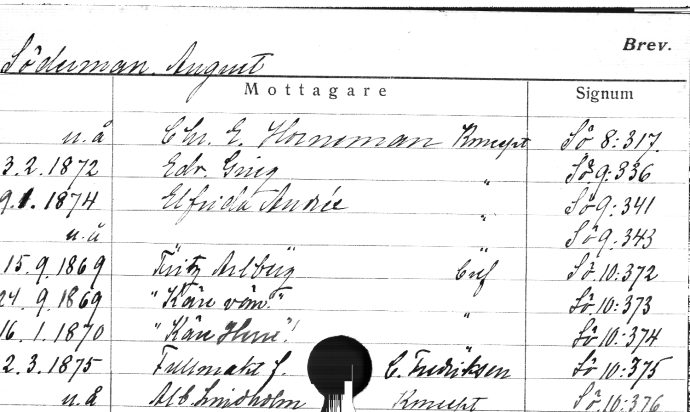 Brev.
Söderman, August
Mottagare Signum
u.å Chr. E. Horneman Koncept Sö 8:317.
3.2.1872 Edv. Grieg " Sö 9:336
9.1.1874 Elfrida Andrée " Sö 9:341
u.å " " Sö 9:343
15.9.1869 Fritz Arlberg Bref Sö 10:372
24.9.1869 "Käre vän!" " Sö 10:373
16.1.1870 "Käre Herre"! Sö 10:374
2.3.1875 Fullmakt f. C. Fredriksen Sö 10:375
u.å Alb Lindholm Koncept Sö 10:376